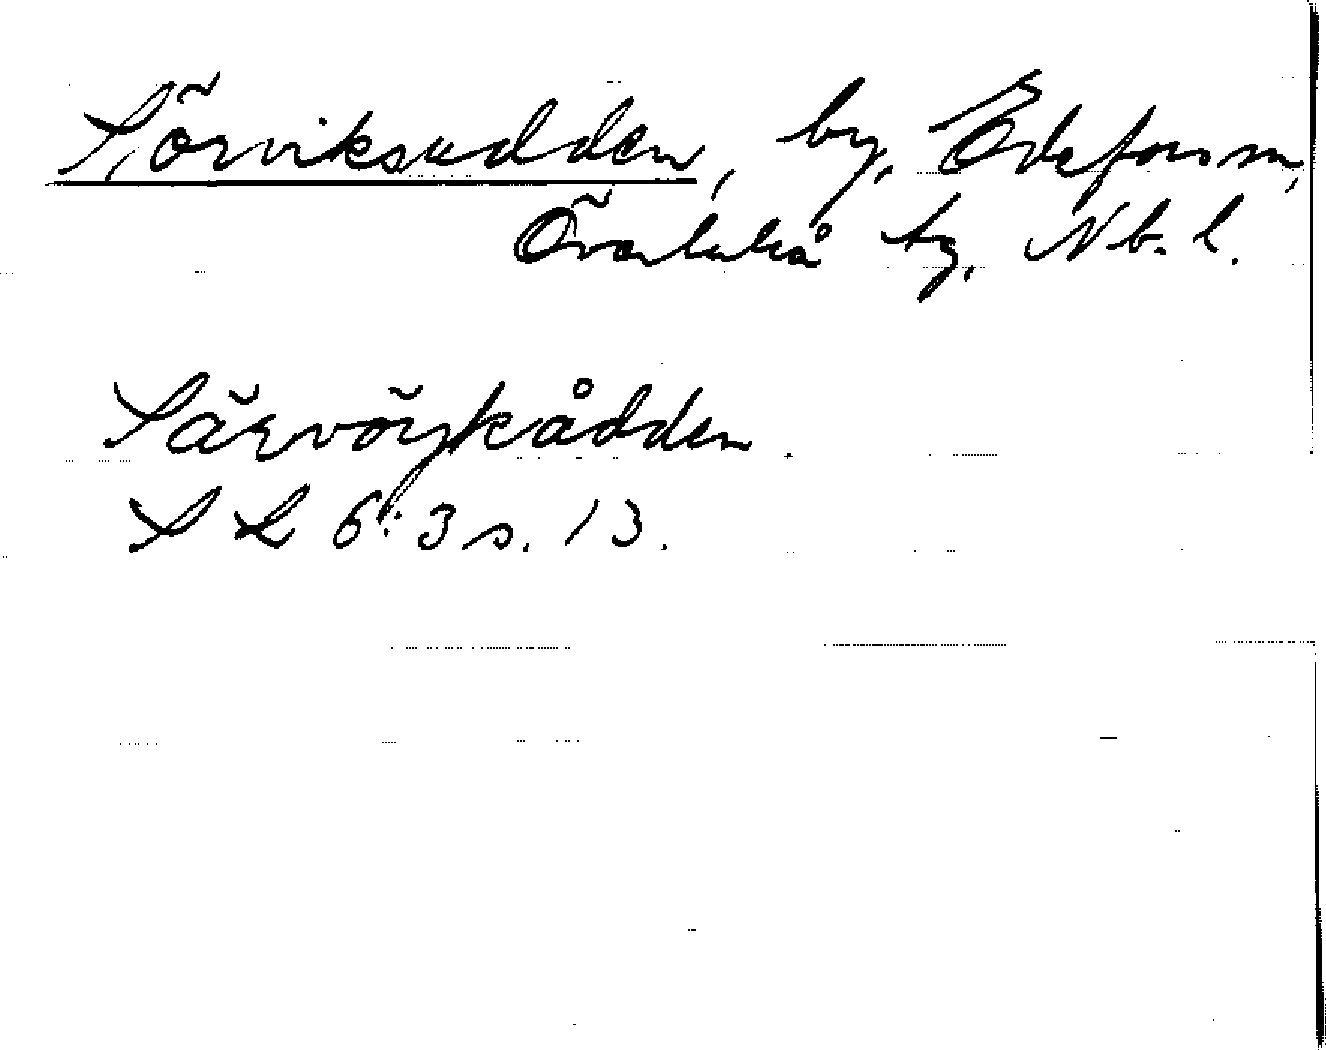 Sörviksudden, by, Edefors sn,
Överluleå tg, Nb. l.
Särvöykådden.
S L 6:3 s. 13.